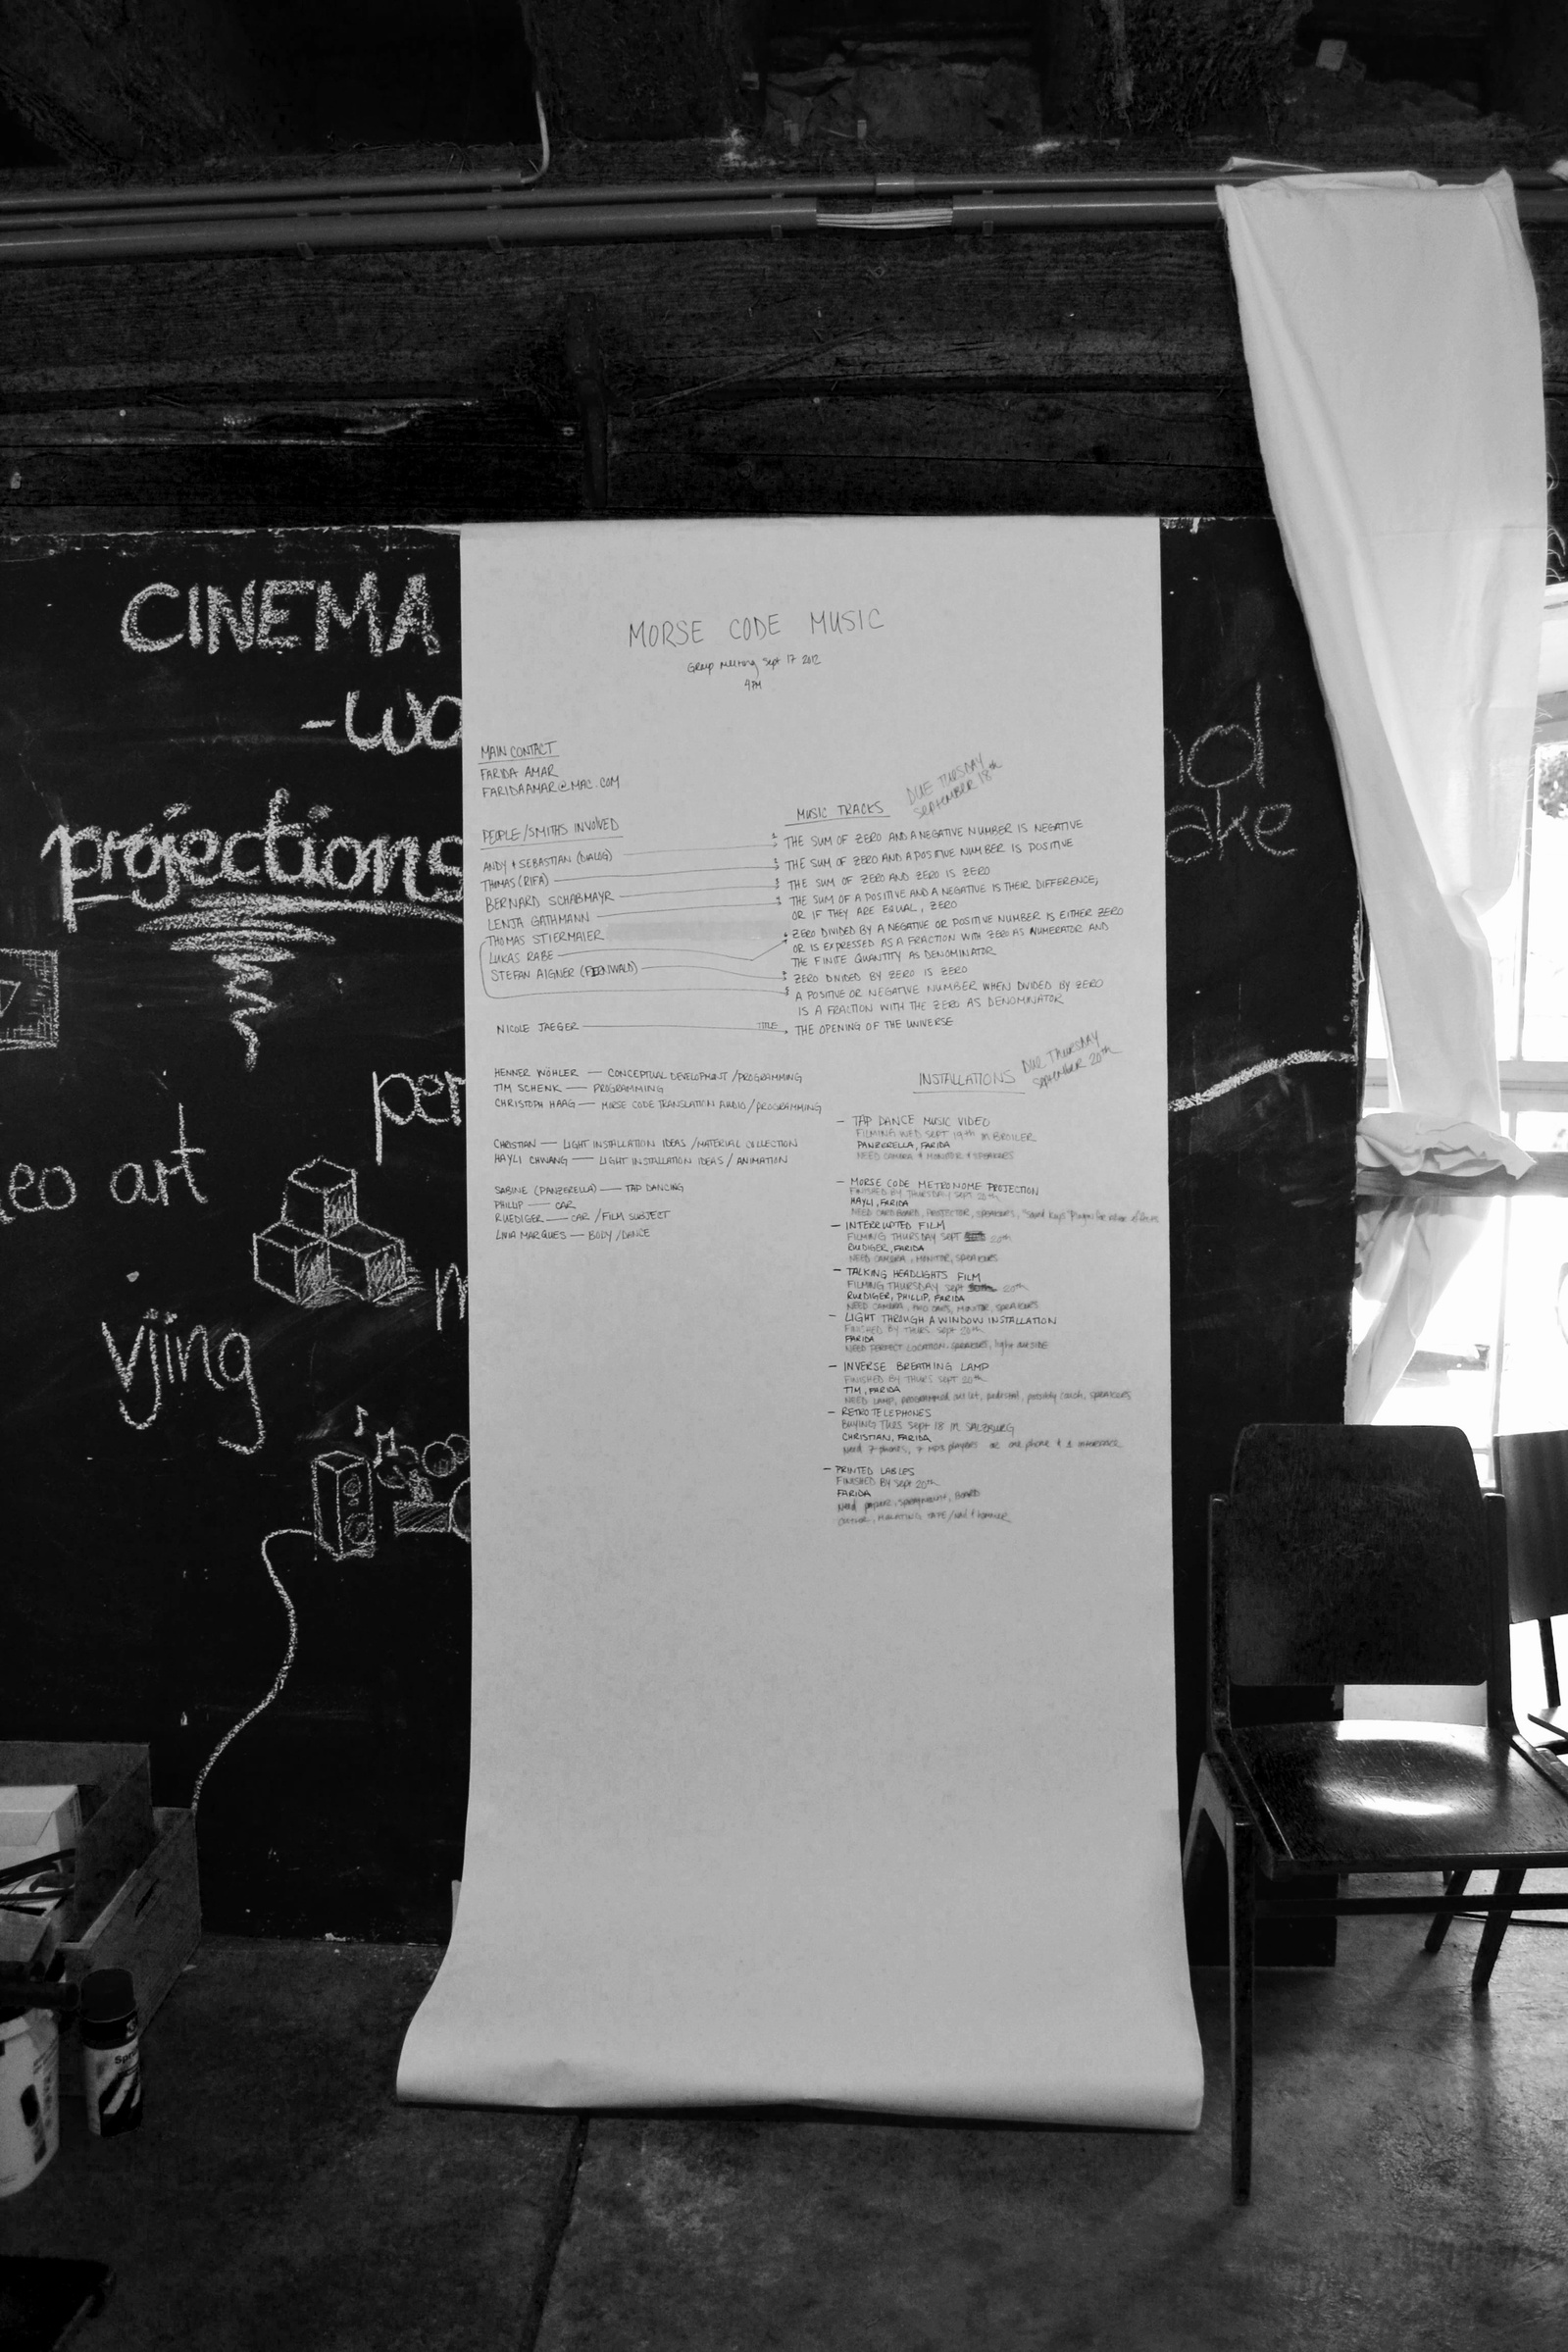 CINEMA
-wo
projections
per
eo art
vjing
MORSE CODE MUSIC
Group Meeting Sept 17 2012
4PM
MAIN CONTACT
FARIDA AMAR
FARIDAAMAR@MAC.COM
PEOPLE/SMITHS INVOLVED
ANDY & SEBASTIAN (DIALOG)
THOMAS (RIFA)
BERNARD SCHABMAYR
LENJA GATHMANN
THOMAS STIERMAIER
LUKAS RABE
STEFAN AIGNER (FERNWALD)
NICOLE JAEGER
HENNER WÖHLER — CONCEPTUAL DEVELOPMENT/PROGRAMMING
TIM SCHENK — PROGRAMMING
CHRISTOPH HAAG — MORSE CODE TRANSLATION AUDIO/PROGRAMMING
CHRISTIAN — LIGHT INSTALLATION IDEAS/MATERIAL COLLECTION
HAYLI CHWANG — LIGHT INSTALLATION IDEAS/ANIMATION
SABINE (PANZERELLA) — TAP DANCING
PHILLIP — CAR
RUEDIGER — CAR/FILM SUBJECT
LIVIA MARQUES — BODY/DANCE
MUSIC TRACKS
DUE TUESDAY
September 18th
1 THE SUM OF ZERO AND A NEGATIVE NUMBER IS NEGATIVE
2 THE SUM OF ZERO AND A POSITIVE NUMBER IS POSITIVE
3 THE SUM OF ZERO AND ZERO IS ZERO
4 THE SUM OF A POSITIVE AND A NEGATIVE IS THEIR DIFFERENCE,
OR IF THEY ARE EQUAL, ZERO
ZERO DIVIDED BY A NEGATIVE OR POSITIVE NUMBER IS EITHER ZERO
OR IS EXPRESSED AS A FRACTION WITH ZERO AS NUMERATOR AND
THE FINITE QUANTITY AS DENOMINATOR
ZERO DIVIDED BY ZERO IS ZERO
A POSITIVE OR NEGATIVE NUMBER WHEN DIVIDED BY ZERO
IS A FRACTION WITH THE ZERO AS DENOMINATOR
TITLE THE OPENING OF THE UNIVERSE
INSTALLATIONS
DUE THURSDAY
September 20th
— TAP DANCE MUSIC VIDEO
FILMING WED SEPT 19th IN BROILER
PANZERELLA, FARIDA
NEED CAMERA & MONITOR & SPEAKERS
— MORSE CODE METRONOME PROJECTION
FINISHED BY THURSDAY SEPT 20th
HAYLI, FARIDA
NEED CARDBOARD, PROJECTOR, SPEAKERS, "Sound Keys" Plugin for after effects
— INTERRUPTED FILM
FILMING THURSDAY SEPT 20th
RUDIGER, FARIDA
NEED CAMERA, MONITOR, SPEAKERS
— TALKING HEADLIGHTS FILM
FILMING THURSDAY SEPT 20th
RUEDIGER, PHILLIP, FARIDA
NEED CAMERA, TWO CARS, MONITOR, SPEAKERS
— LIGHT THROUGH A WINDOW INSTALLATION
FINISHED BY THURS SEPT 20th
FARIDA
NEED PERFECT LOCATION, SPEAKERS, light outside
— INVERSE BREATHING LAMP
FINISHED BY THURS SEPT 20th
TIM, FARIDA
NEED LAMP, programmed outlet, pedestal, possibly couch, speakers
— RETRO TELEPHONES
BUYING TUES Sept 18 in SALZBURG
CHRISTIAN, FARIDA
Need 7 phones, 7 mp3 players or one phone & 1
— PRINTED LABLES
FINISHED BY Sept 20th
FARIDA
Need paper, spraymount, BOARD
cutter, MOUNTING TAPE/Nail & hammer
nd
ake
Spr